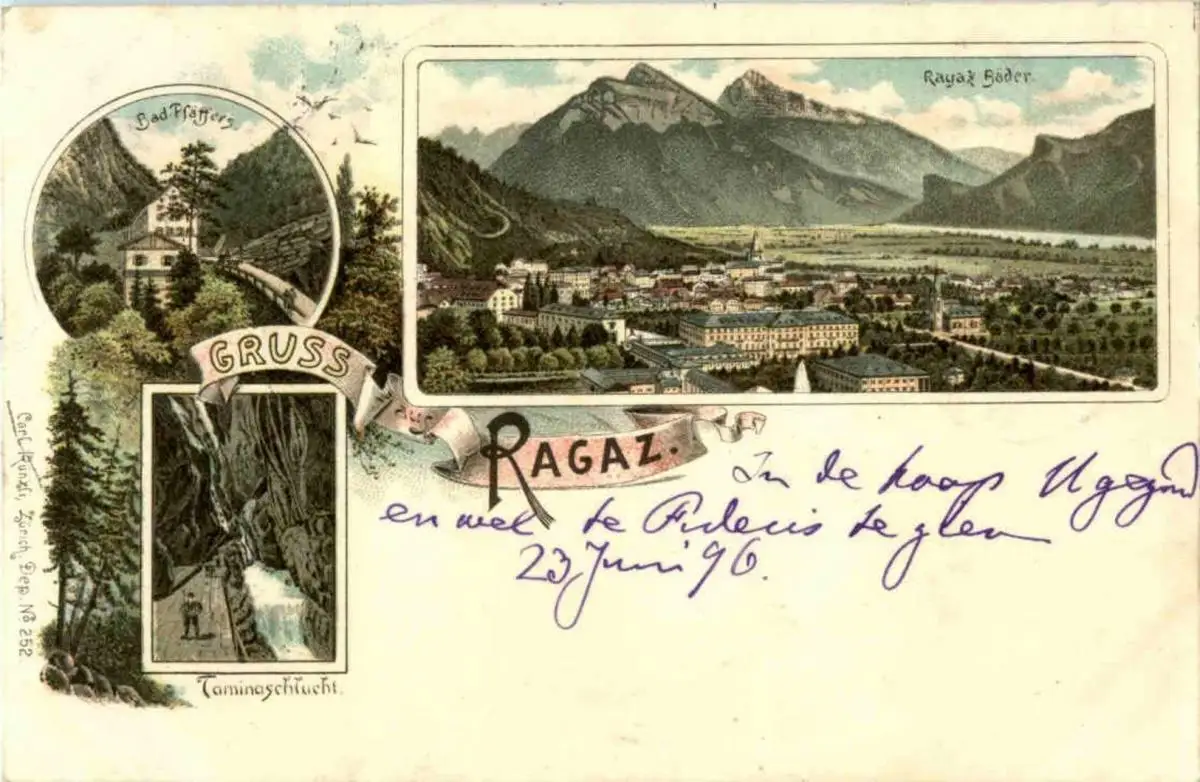 Bad Pfäffers
Ragaz Bäder.
GRUSS
aus
RAGAZ.
In de hoop U gezond
en wel te Fideris te zien
23 Juni 96.
Taminaschlucht.
Carl Künzli, Zürich, Dep. No 252.